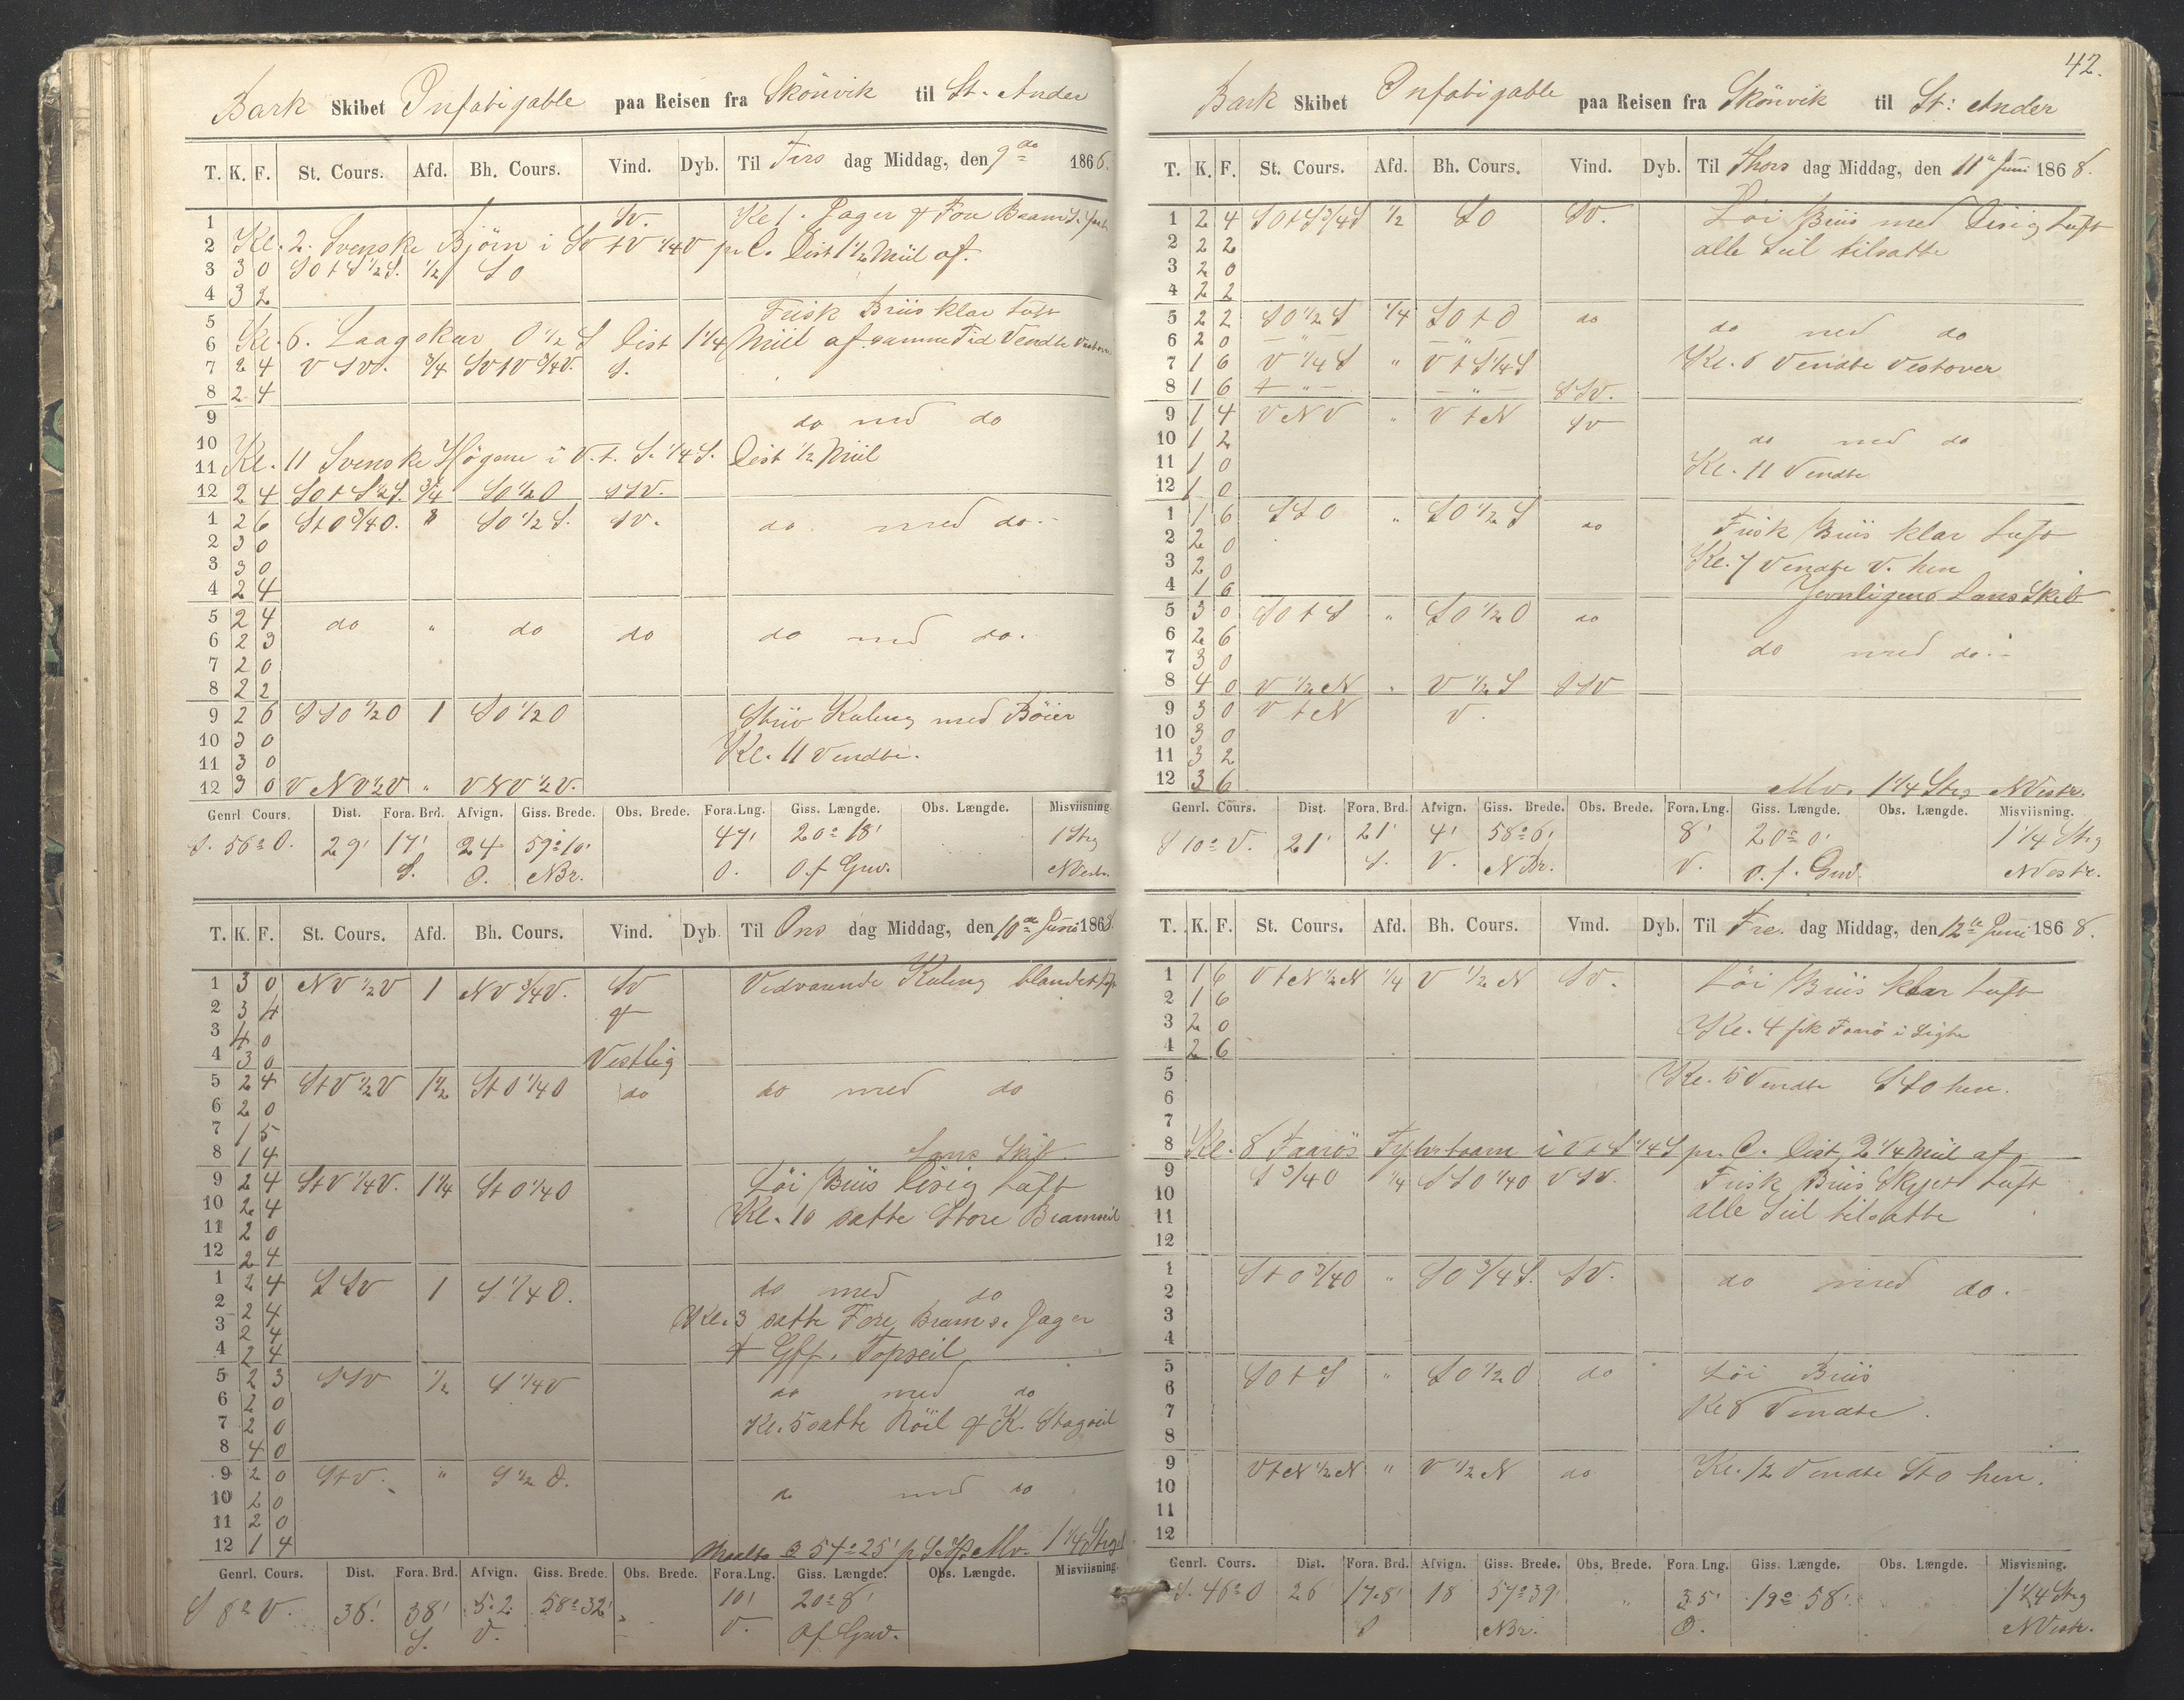 Bark Skibet Infatigable paa Reisen fra Skönvik til St. Ander
T. K. F. St. Cours. Afd. Bh. Cours. Vind. Dyb. Til Tirs dag Middag, den 9de 1866.
1 Sv. Kl 1. Jager & Fou Bram S. fast
2 Kl. 2. Svenske Björn i SV t V 1/4 V pr C. Dist 1 1/2 Miil af.
3 3 0 SO t S 1/2 S. 1/2 SO
4 3 2
5 Frisk Briis klar Luft
6 Kl. 6. Laagskar O 1/2 S Dist 1 1/4 Miil af samme Tid Vendte Vestover
7 2 4 V SV. 3/4 SV t V 3/4 V. S.
8 2 4
9 do med do
10
11 Kl. 11 Svenske Högene i V. t. S. 1/4 S. Dist 1/2 Miil
12 2 4 SO t S 1/2 S. 3/4 SO 1/2 O SSV.
1 2 6 S t O 3/4 O. " SO 1/2 S. SV. do med do.-
2 3 0
3 3 0
4 2 4
5 2 4 do " do do do med do.
6 2 3
7 2 0
8 2 2
9 2 6 SSO 1/2 O 1 SO 1/2 O Stiiv Kuling med Böier
10 3 0 Kl. 11 Vendte.
11 3 0
12 3 0 V NV 1/2 V " VNV 1/2 V.
Genrl. Cours. Dist. Fora. Brd. Afvign. Giss. Brede. Obs. Brede. Fora. Lng. Giss. Længde. Obs. Længde. Misviisning
S. 56° O. 29' 17' 24 59° 10' 47' 20° 18' 1 Streg
S. O. NBr. O. O. f Grw. NVestr.
T. K. F. St. Cours. Afd. Bh. Cours. Vind. Dyb. Til Ons dag Middag, den 10de Juni 1868
1 3 0 NV 1/2 V 1 NV 3/4 V. SV Vedvarende Kuling blandet Luft
2 3 4 &
3 4 0
4 3 0 Vestlig
5 2 4 S t V 1/2 V 1 1/2 S t O 1/4 O do do med do
6 2 0
7 1 5
8 1 4 Lans Skib.
9 2 4 S t V 1/4 V. 1 1/4 S t O 1/4 O Löi Briis Disig Luft
10 2 4 Kl. 10 satte Store Bramseil
11 2 0
12 2 4
1 2 4 SSV 1 S 1/4 O. do med do
2 2 4 Kl. 3 satte Fore Bram s. Jager
3 2 4
4 2 4 & Gff. Topseil
5 2 3 SSV 1/2 S 1/4 V do med do
6 2 0
7 2 0 Kl. 5 satte Röil & K. Stagseil
8 4 0
9 2 0 S t V. " S 1/2 O. do med do
10 2 0
11 2 0
12 1 4 54° 25' Mv. 1 1/4 Streg
Genrl. Cours. Dist. Fora. Brd. Afvign. Giss. Brede. Obs. Brede. Fora. Lng. Giss. Længde. Obs. Længde. Misviisning.
S 8° V. 38' 38' 5.2 58° 32' 10' 20° 8'
S. V. V. Of Grw.
42.
Bark Skibet Infatigable paa Reisen fra Skönvik til St: Ander
T. K. F. St. Cours. Afd. Bh. Cours. Vind. Dyb. Til Thors dag Middag, den 11te Juni 1868.
1 2 4 SO t S 3/4 S 1/2 SO SV. Löi Briis med Disig Luft
2 2 2 alle Seil tilsatte
3 2 0
4 2 2
5 2 2 SO 1/2 S 1/4 SO t O do do med do
6 2 0 - " - - " -
7 1 6 V 1/4 S " V t S 1/4 S Kl. 6 Vendte Vestover
8 1 6 - " - - " - SSV.
9 1 4 VNV " V t N SV
10 1 2 do med do
11 1 0 Kl. 11 Vendte
12 1 0
1 1 6 SSO " SO 1/2 S do Frisk Briis klar Luft
2 2 0
3 2 0 Kl. 7 Vendte V. hen
4 1 6 Jevnligens Lans Skib
5 3 0 SO t S " SO 1/2 O do
6 2 6 do med do.-
7 3 0
8 4 0 V 1/2 N " V 1/2 S SSV
9 3 0 V t N V.
10 3 0
11 3 2
12 3 6 Mv. 1 1/4 Streg NVestr.
Genrl. Cours. Dist. Fora. Brd. Afvign. Giss. Brede. Obs. Brede. Fora. Lng. Giss. Længde. Obs. Længde. Misviisning.
S 10° V. 21' 21' 4' 58° 6' 8' 20° 0' 1 1/4 Streg
S. V. NBr. V. O. f. Grw. NVestr.
T. K. F. St. Cours. Afd. Bh. Cours. Vind. Dyb. Til Fre. dag Middag, den 12te Juni 1868.
1 1 6 V t N 1/2 N 1/4 V 1/2 N SV. Löi Briis klar Luft
2 1 6
3 2 0 Kl. 4 fik Faarö i Sigte
4 2 6
5 Kl. 5 Vendte SSO hen.
6
7
8 Kl. 8 Faarös Fyhrtaarn i V t S 1/4 S pr. C. Dist 2 1/4 Miil af
9 S 3/4 O 1/4 SSO 1/4 O VSV. Frisk Briis Skyet Luft
10
11 alle Seil tilsatte
12
1 S t O 3/4 O " SO 3/4 S. SV. do med do.
2
3
4
5 SO t S " SO 1/2 O do Löi Briis
6
7 Kl 8 Vendte.
8
9 V t N 1/2 N " V 1/2 N do Kl. 12 Vendte S t O hen.
10
11
12
Genrl. Cours. Dist. Fora. Brd. Afvign. Giss. Brede. Obs. Brede. Fora. Lng. Giss. Længde. Obs. Længde. Misvisning.
S. 46° O 26' 17.8' 18 57° 39' " 35' 19° 58' 1 1/4 Streg
S NBr. O. NVestr.